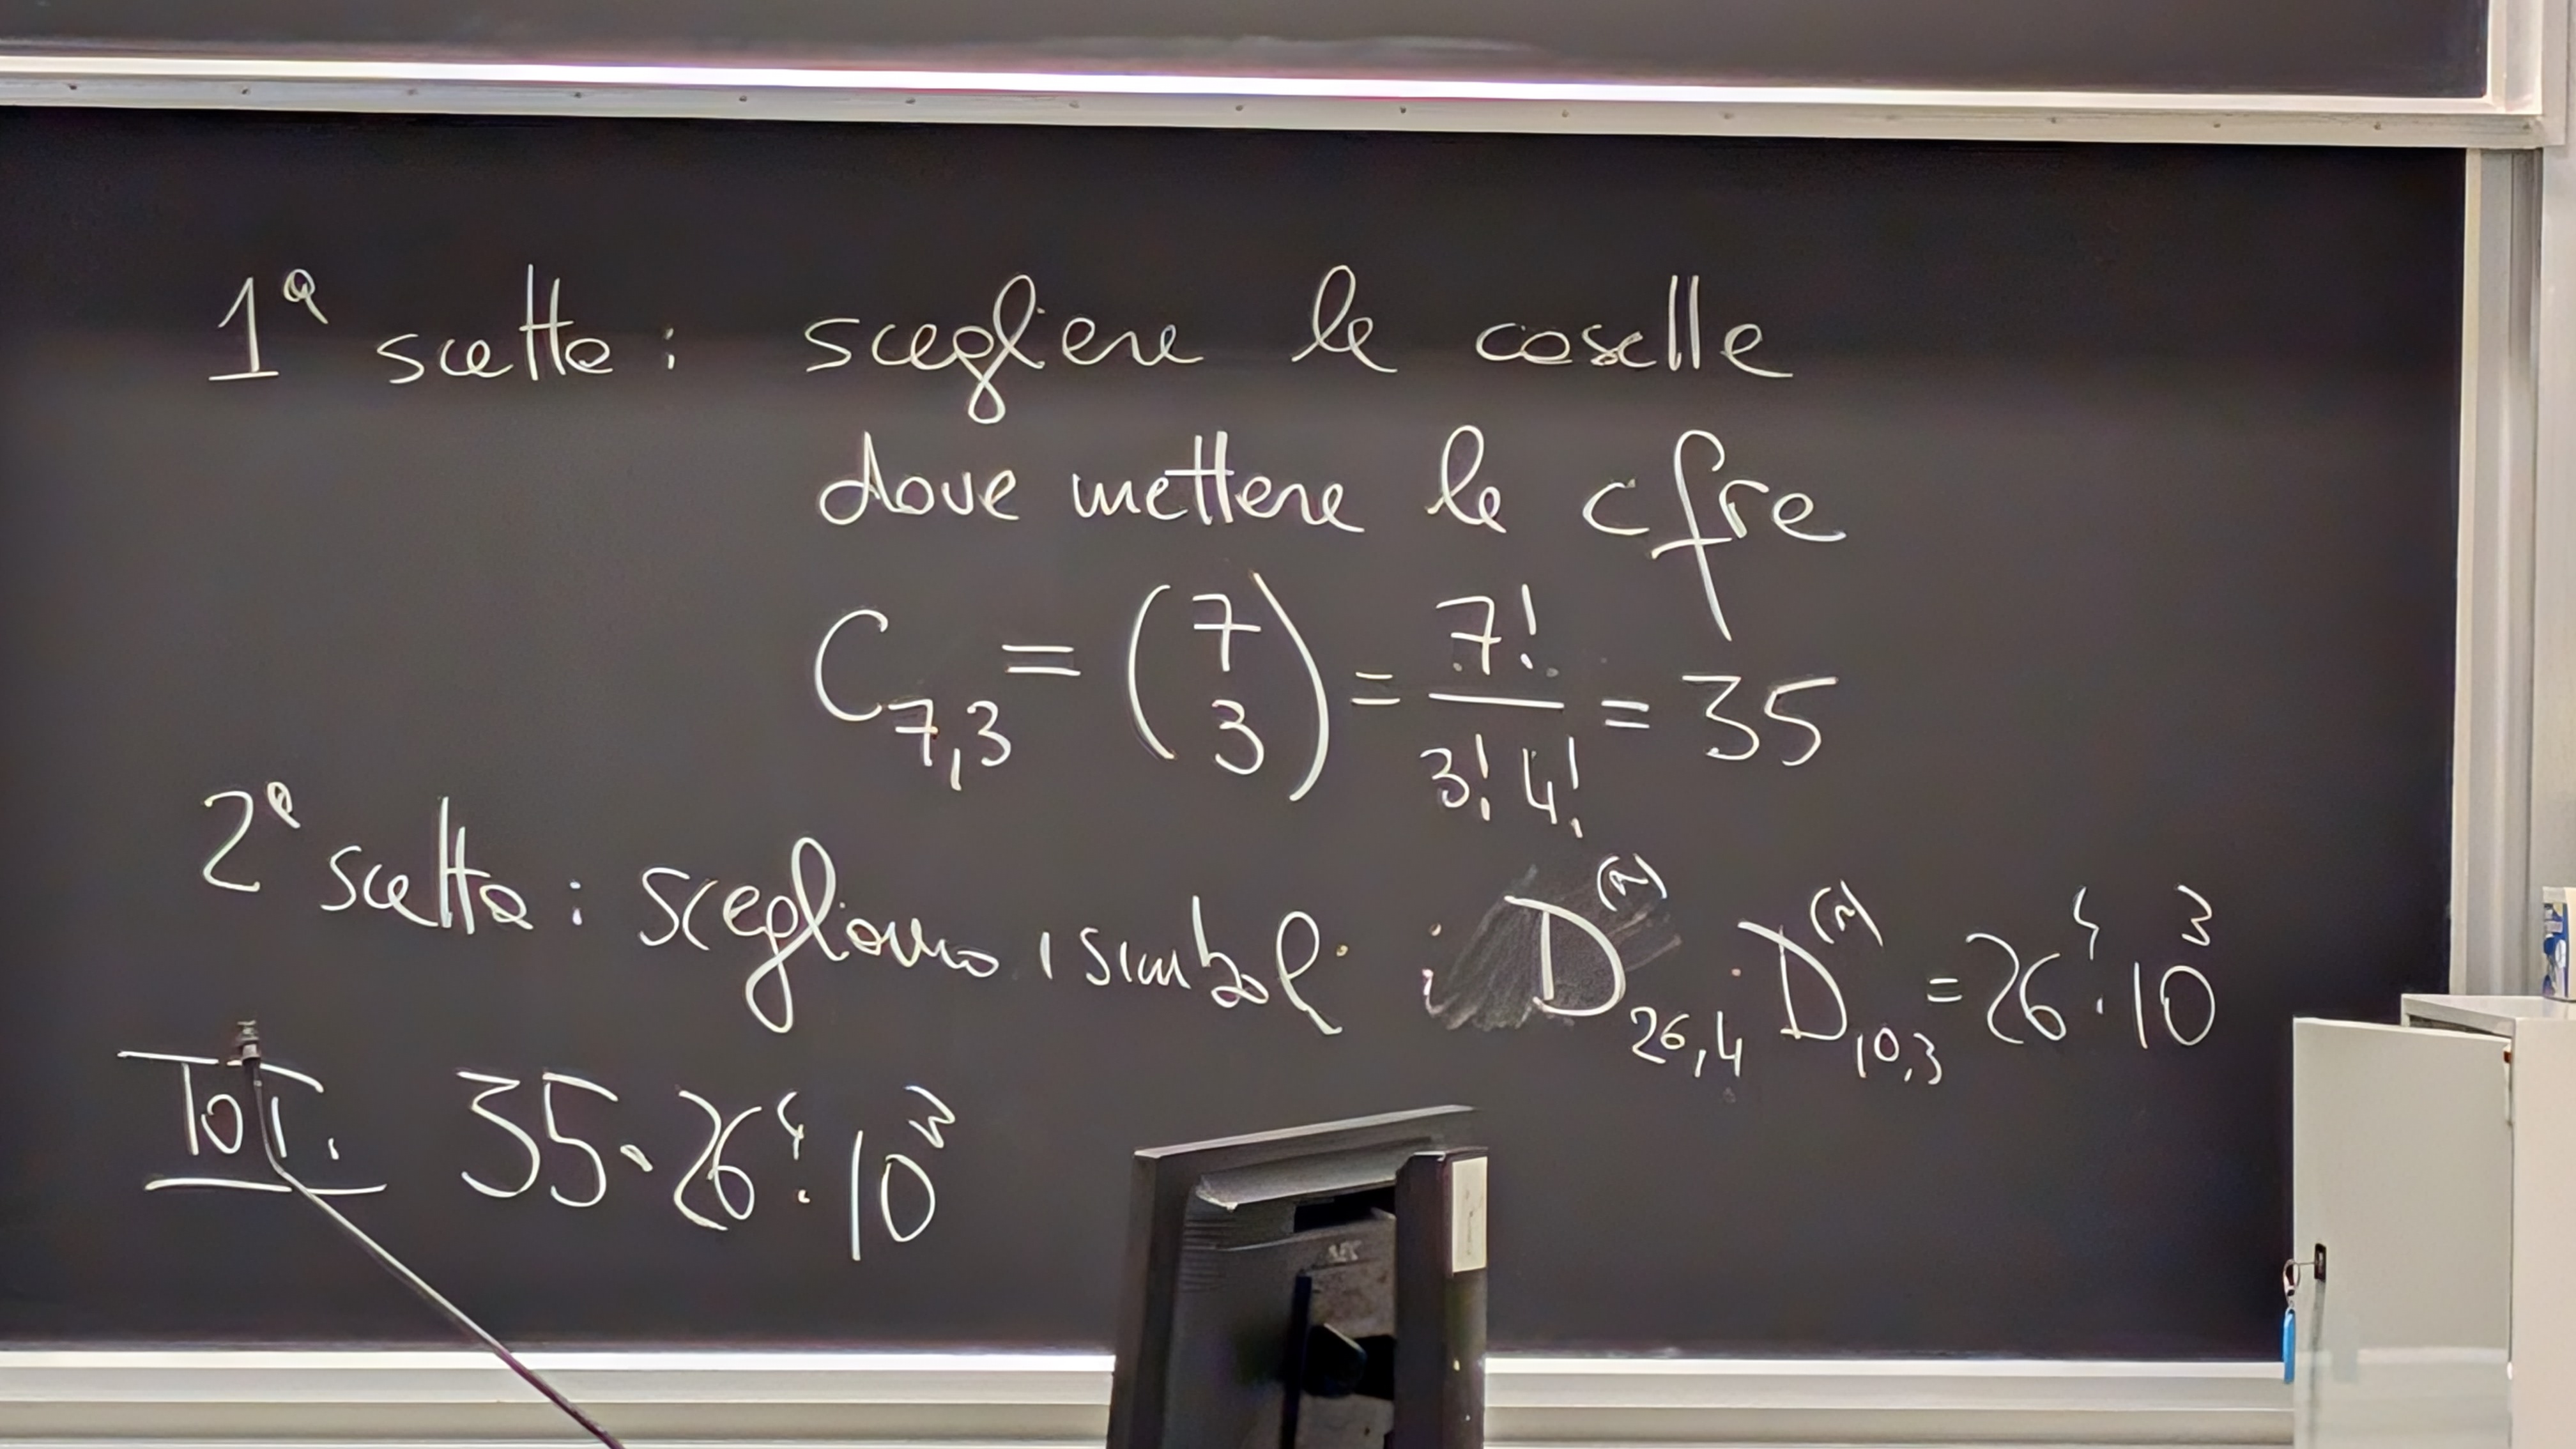 1ª scelta: scegliere le caselle
dove mettere le cifre
C_{7,3} = (7 3) = 7!/(3! 4!) = 35
2ª scelta: scegliamo i simboli: D^{(r)}_{26,4} · D^{(r)}_{10,3} = 26⁴ · 10³
TOT. 35 · 26⁴ · 10³